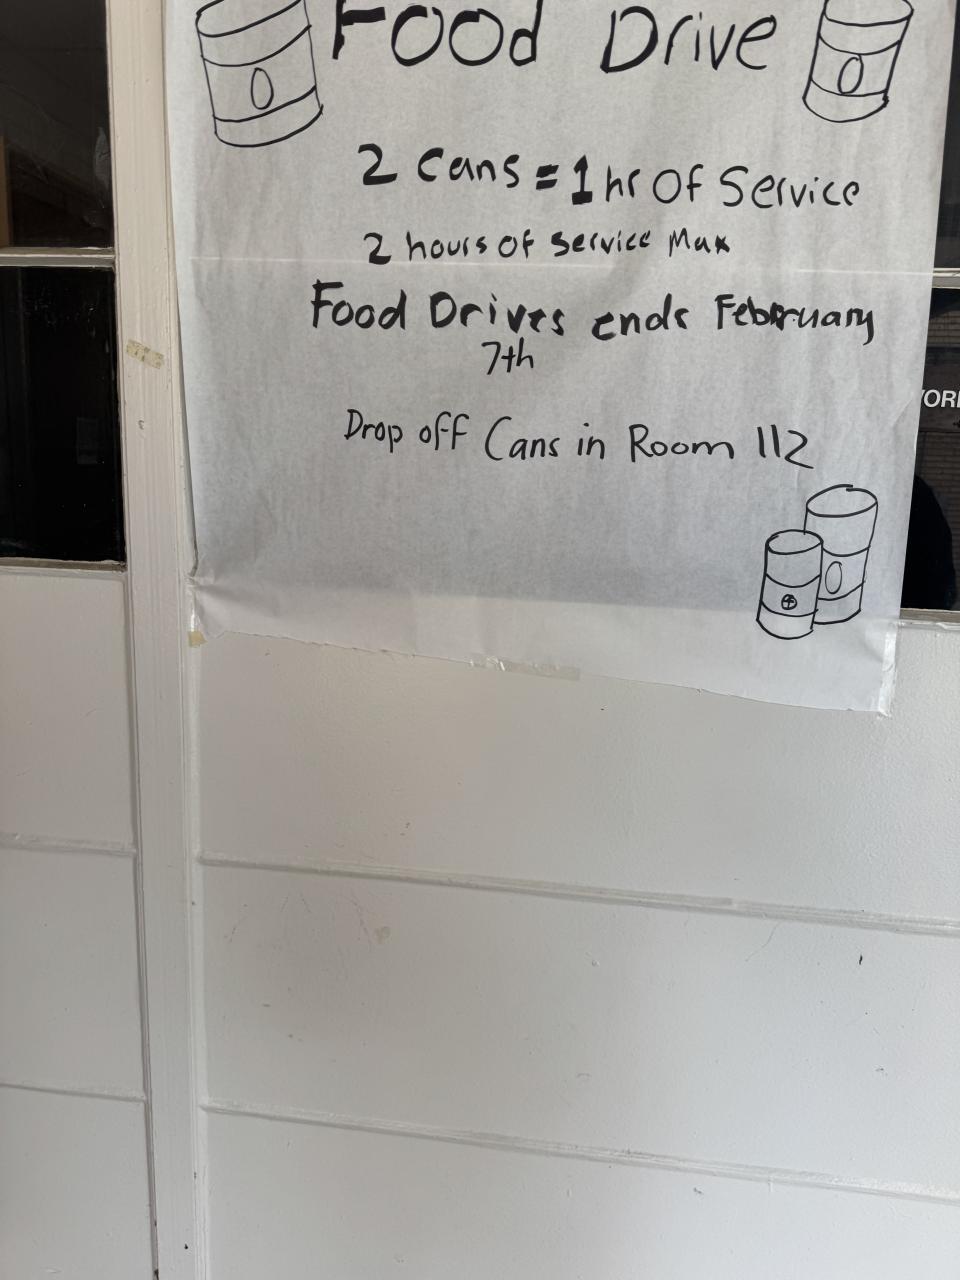 Food Drive
2 Cans = 1 hr Of Service
2 hours of Service Max
Food Drives ends February
7th
Drop off Cans in Room 112